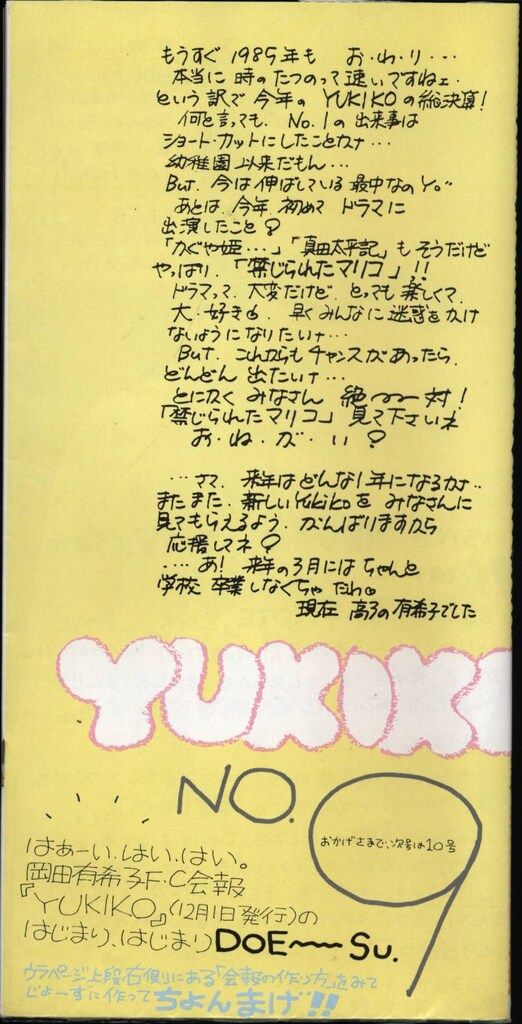 もうすぐ 1985年も お・わ・り・・・
本当に 時の たつのって 速いですねェ.
という訳で 今年の YUKIKOの総決算!
何と言っても. No.1の 出来事は
ショート・カットにしたことカナ・・・
幼稚園以来だもん・・・
But. 今は 伸ばしている 最中なのヨ。
あとは. 今年 初めて ドラマに
出演したこと♀
「かぐや姫・・・」「真田太平記」もそうだけど
やっぱり.「禁じられたマリコ」!!
ドラマって. 大変だけど. とっても楽しくて.
大・好き♂. 早く みんなに 迷惑をかけ
ないようになりたいナ・・・
But. これからも チャンスがあったら.
どんどん 出たいナ・・・
とにかく みなさん 絶〜〜対!
「禁じられたマリコ」見て下さいネ
お・ね・が・い♀
・・・さて. 来年はどんな1年になるカナ・・
またまた. 新しいYukikoを みなさんに
見てもらえるよう. がんばりますから
応援してネ♀
・・・・あ! 来年の3月には ちゃんと
学校 卒業しなくちゃ だわ。
現在 高3の有希子でした
YUKIK
NO. 9
おかげさまで、次号は10号
はぁーい、はい、はい。
岡田有希子F・C会報
『YUKIKO』(12月1日発行)の
はじまり、はじまりDOE〜〜Su.
ウラページ上段右側りにある「会報の作り方」をみて
じょーずに作ってちょんまげ!!